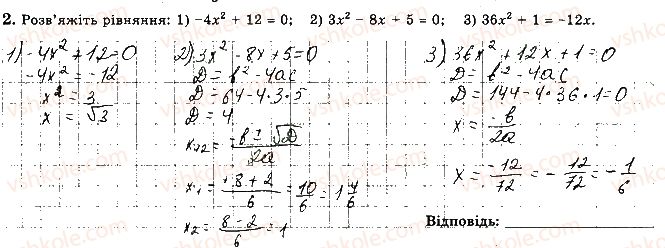 2. Розв'яжіть рівняння: 1) –4x² + 12 = 0; 2) 3x² – 8x + 5 = 0; 3) 36x² + 1 = –12x.
1) -4x² + 12 = 0
-4x² = -12
x² = 3
x = √3
2) 3x² - 8x + 5 = 0
D = b² - 4ac
D = 64 - 4·3·5
D = 4
x₁,₂ = (-b ± √D)/2a
x₁ = (8+2)/6 = 10/6 = 1 4/6
x₂ = (8-2)/6 = 1
3) 36x² + 12x + 1 = 0
D = b² - 4ac
D = 144 - 4·36·1 = 0
x = -b/2a
x = -12/72 = -12/72 = -1/6
Відповідь: